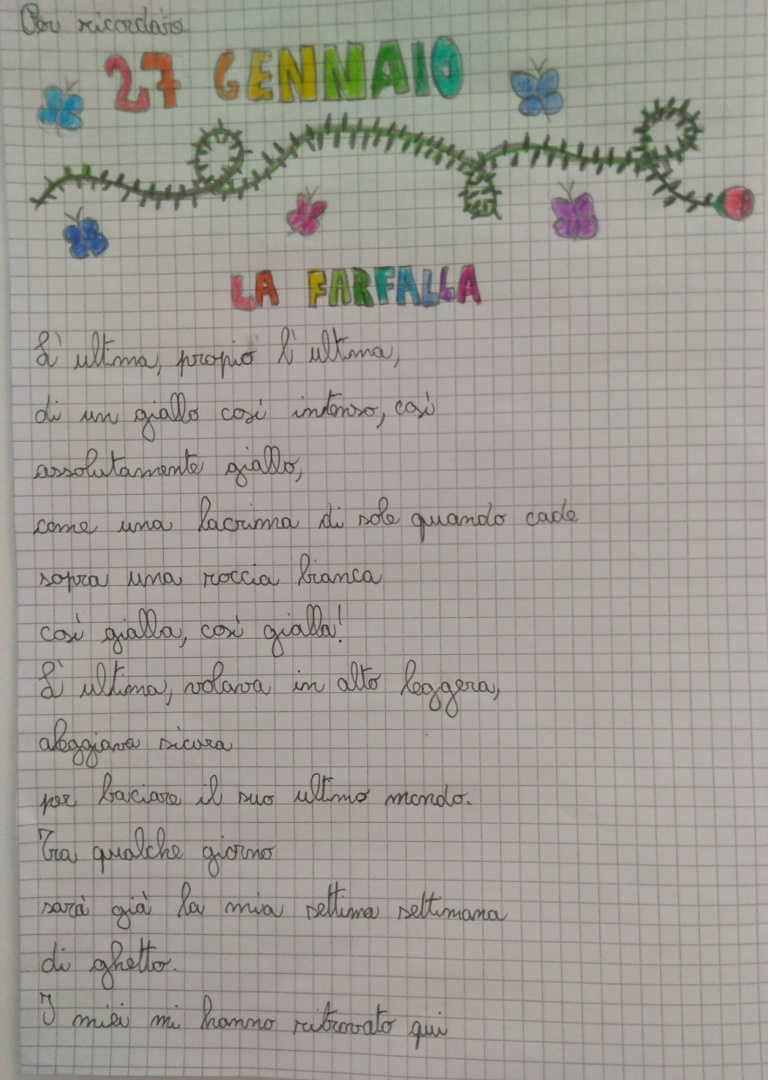 Per ricordare
27 GENNAIO
LA FARFALLA
L'ultima, propio l'ultima,
di un giallo così intenso, così
assolutamente giallo,
come una lacrima di sole quando cade
sopra una roccia bianca
così gialla, così gialla!
L'ultima, volava in alto leggera,
aleggiava sicura
per baciare il suo ultimo mondo.
Tra qualche giorno
sarà già la mia settima settimana
di ghetto.
I miei mi hanno ritrovato qui